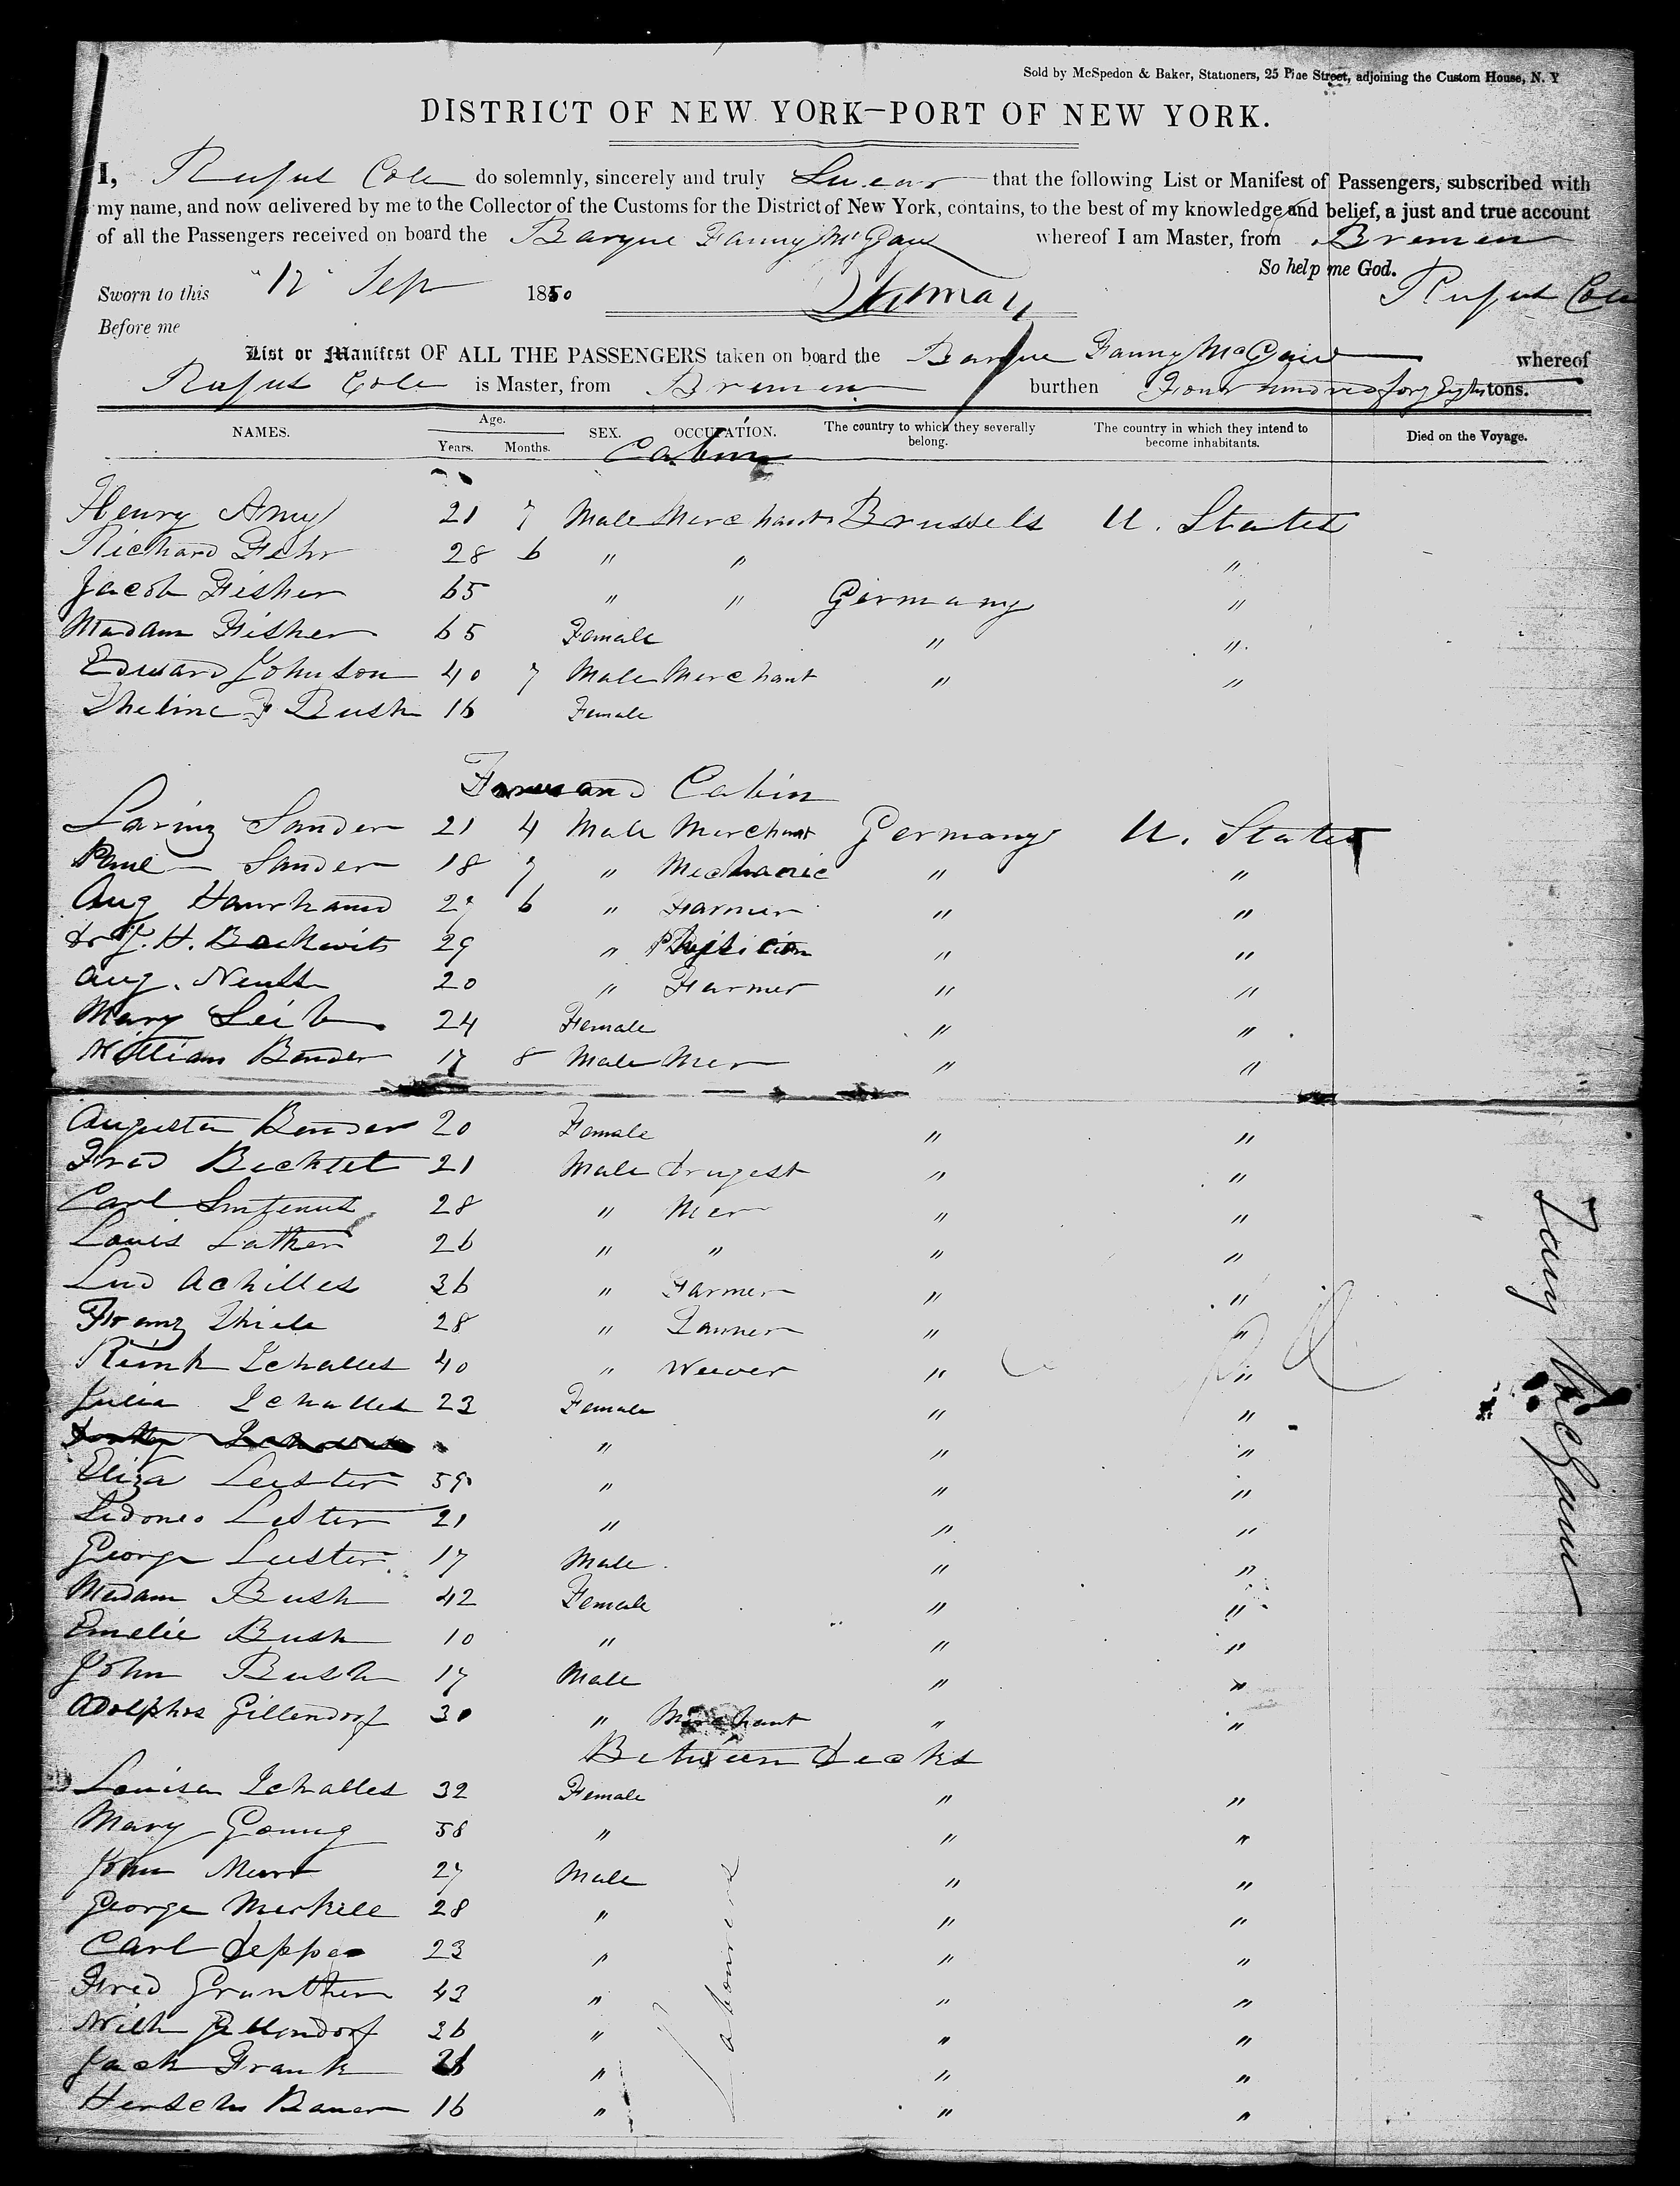 Sold by McSpedon & Baker, Stationers, 25 Pine Street, adjoining the Custom House, N. Y
DISTRICT OF NEW YORK—PORT OF NEW YORK.
I, Rufus Cole do solemnly, sincerely and truly Swear that the following List or Manifest of Passengers, subscribed with
my name, and now delivered by me to the Collector of the Customs for the District of New York, contains, to the best of my knowledge and belief, a just and true account
of all the Passengers received on board the Barque Fanny McGaw whereof I am Master, from Bremen
So help me God.
Sworn to this "12" Sep 1850 Rufus Cole
Before me
List or Manifest OF ALL THE PASSENGERS taken on board the Barque Fanny McGaw whereof
Rufus Cole is Master, from Bremen burthen Four hundred tons.
NAMES. Age. Years. Months. SEX. OCCUPATION. The country to which they severally belong. The country in which they intend to become inhabitants. Died on the Voyage.
Cabin
Henry Amy 21 7 Male Merchant Brussels U. States
Richard Fehr 28 6 " " "
Jacob Fisher 65 " " Germany "
Madam Fisher 65 Female " "
Edward Johnson 40 7 Male Merchant " "
F Bush 16 Female
Forward Cabin
Sander 21 4 Male Merchant Germany U. States
Paul Sander 18 7 " Mechanic " "
Aug 27 6 " Farmer " "
Dr J. H. 29 " Physician " "
Aug. 20 " Farmer " "
Mary Leib 24 Female " "
William Bender 17 8 Male Mer " "
Augusta Bender 20 Female " "
Fred Bechtel 21 Male drugest " "
Carl 28 " Mer " "
Louis Luther 26 " " " "
Lud Achilles 36 " Farmer " "
Franz Thiele 28 " Tanner " "
Reinh Schalles 40 " Weever " "
Julia Schalles 23 Female " "
" " "
Eliza Leister 59 " " "
Sidoneo Lester 21 " " "
George Leester 17 Male " "
Madam Bush 42 Female " "
Emelie Bush 10 " " "
John Bush 17 Male " "
Adolphos Gillendorf 30 " Merchant " "
Between decks
Louisa Schalles 32 Female " "
Mary Young 58 " " "
John 27 Male " "
George Merkell 28 " " "
Carl deppe 23 " " "
Fred Grunther 43 " " "
Wilh Gillendorf 36 " " "
Jack Frank 26 " " "
Bauer 16 " " "
Labourers
Fany McGaw